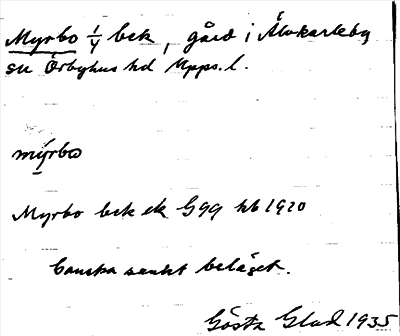 Myrbo 1/4 bek, gård i Älvkarleby
sn Örbyhus hd Upps. l.
mýrbo
Myrbo bek ek G99 hb 1920
Ganska sankt beläget.
Gösta Glad 1935